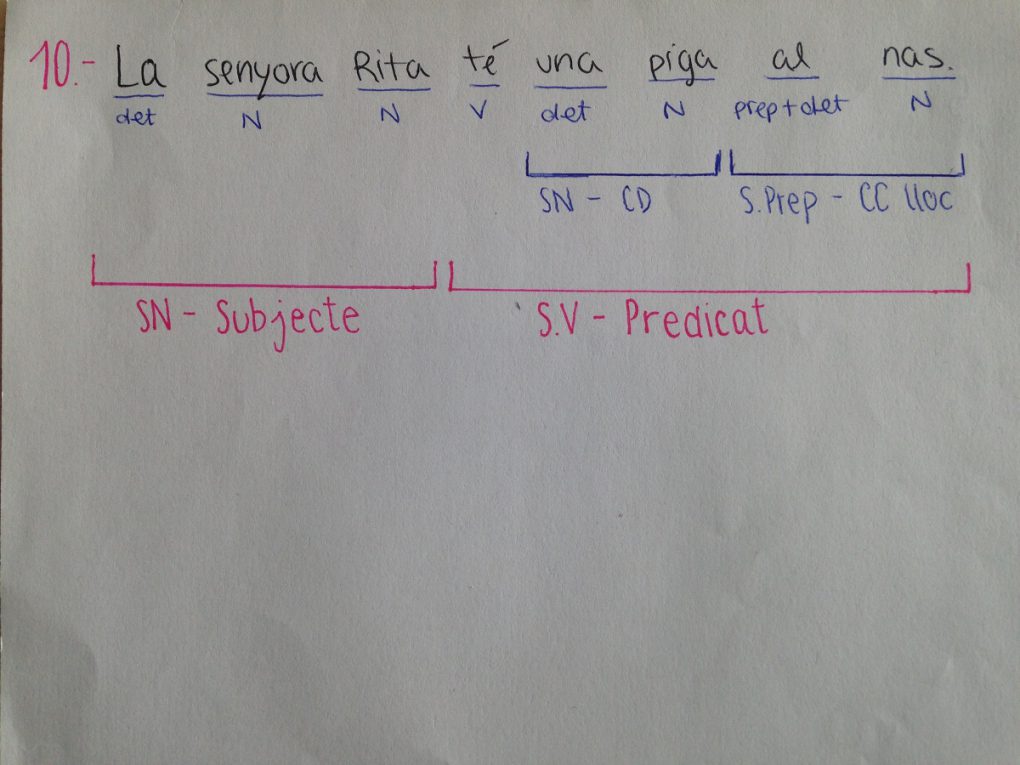 10.- La senyora Rita té una piga al nas.
det N N V det N prep+det N
SN - CD S.Prep - CC lloc
SN - Subjecte S.V - Predicat